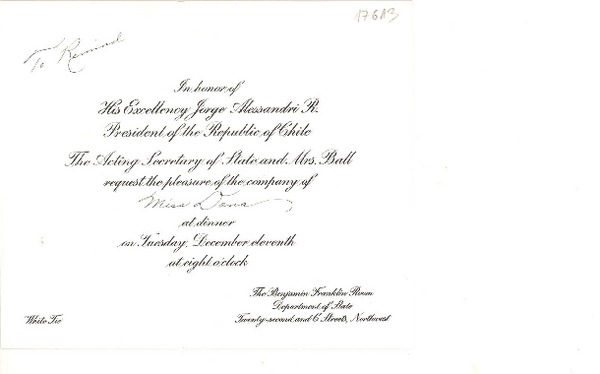 17613
To Remind
In honor of
His Excellency Jorge Alessandri R.
President of the Republic of Chile
The Acting Secretary of State and Mrs. Ball
request the pleasure of the company of
Miss Dona
at dinner
on Tuesday, December eleventh
at eight o'clock
The Benjamin Franklin Room
Department of State
Twenty-second and C Streets, Northwest
White Tie